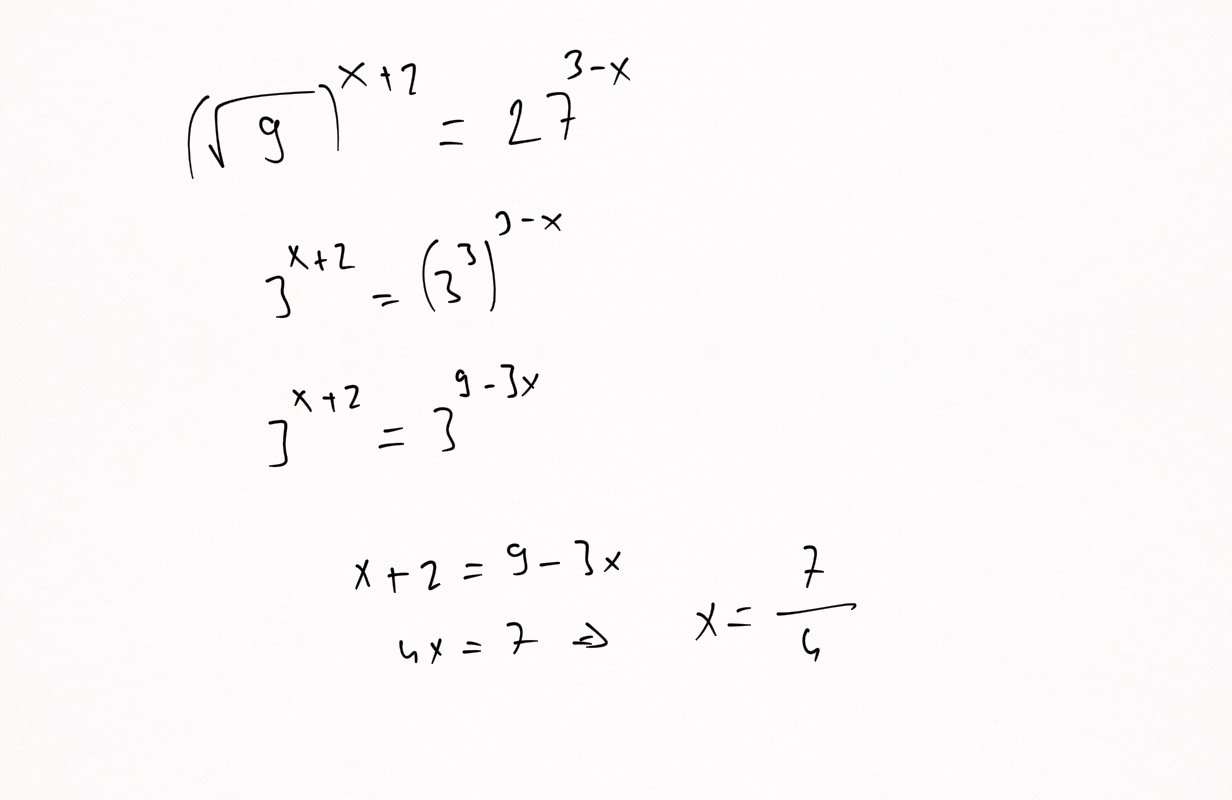 (√9)^(x+2) = 27^(3-x)
3^(x+2) = (3^3)^(3-x)
3^(x+2) = 3^(9-3x)
x+2 = 9-3x
4x = 7 ⇒ x = 7/4